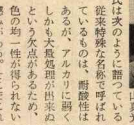 氏は次のように語つている
従来特殊な名称で呼ばれ
ているものは、耐酸性は
あるが、アルカリに弱く
しかも大量処理が出来ぬ
という欠点があるため
色の均一性が得られな